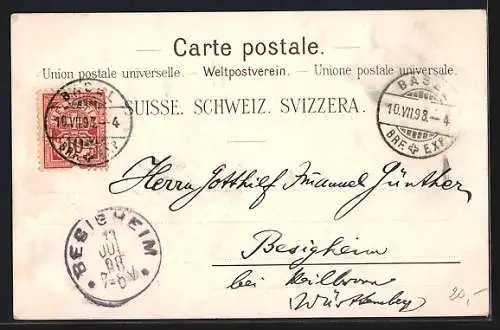 Carte postale.
Union postale universelle. – Weltpostverein. – Unione postale universale.
SUISSE. SCHWEIZ. SVIZZERA.
BASEL
10.VII.98.–4
BRF. EXP.
BASEL
10.VII.98.–4
BRF. EXP.
Herrn Gotthilf Imanuel Günther
Besigheim
bei Heilbronn
Württemberg
BESIGHEIM
11
JUL
98
20,-